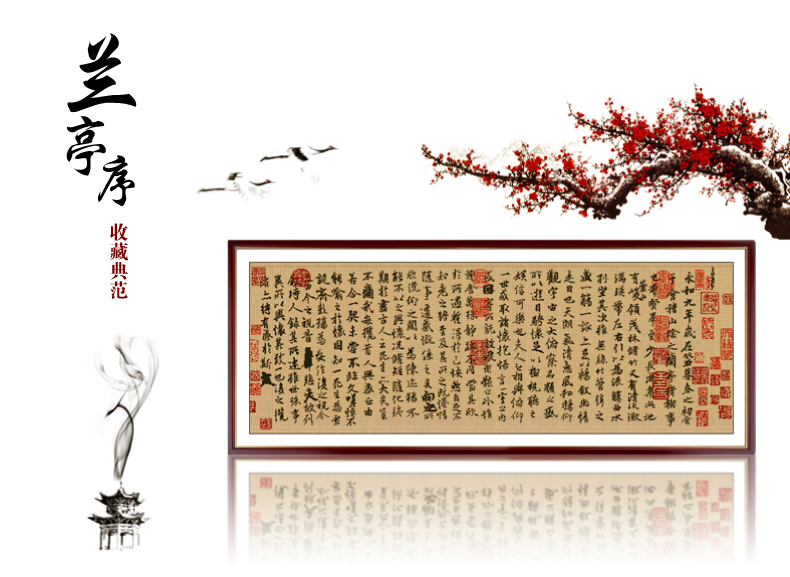 兰亭序
收藏典范
永和九年歲在癸丑暮春之初會
于會稽山陰之蘭亭脩稧事
也羣賢畢至少長咸集此地
有崇山峻領茂林脩竹又有清流激
湍暎帶左右引以為流觴曲水
列坐其次雖無絲竹管弦之
盛一觴一詠亦足以暢敘幽情
是日也天朗氣清惠風和暢仰
觀宇宙之大俯察品類之盛
所以遊目騁懷足以極視聽之
娛信可樂也夫人之相與俯仰
一世或取諸懷抱悟言一室之內
或因寄所託放浪形骸之外雖
趣舍萬殊靜躁不同當其欣
於所遇蹔得於己怏然自足不
知老之將至及其所之既惓情
隨事遷感慨係之矣向之所
欣俛仰之間以為陳迹猶不
能不以之興懷況脩短隨化終
期於盡古人云死生亦大矣豈
不痛哉每攬昔人興感之由
若合一契未嘗不臨文嗟悼不
能喻之於懷固知一死生為虛
誕齊彭殤為妄作後之視今
亦由今之視昔悲夫故列
敘時人錄其所述雖世殊事
異所以興懷其致一也後之攬
者亦將有感於斯文